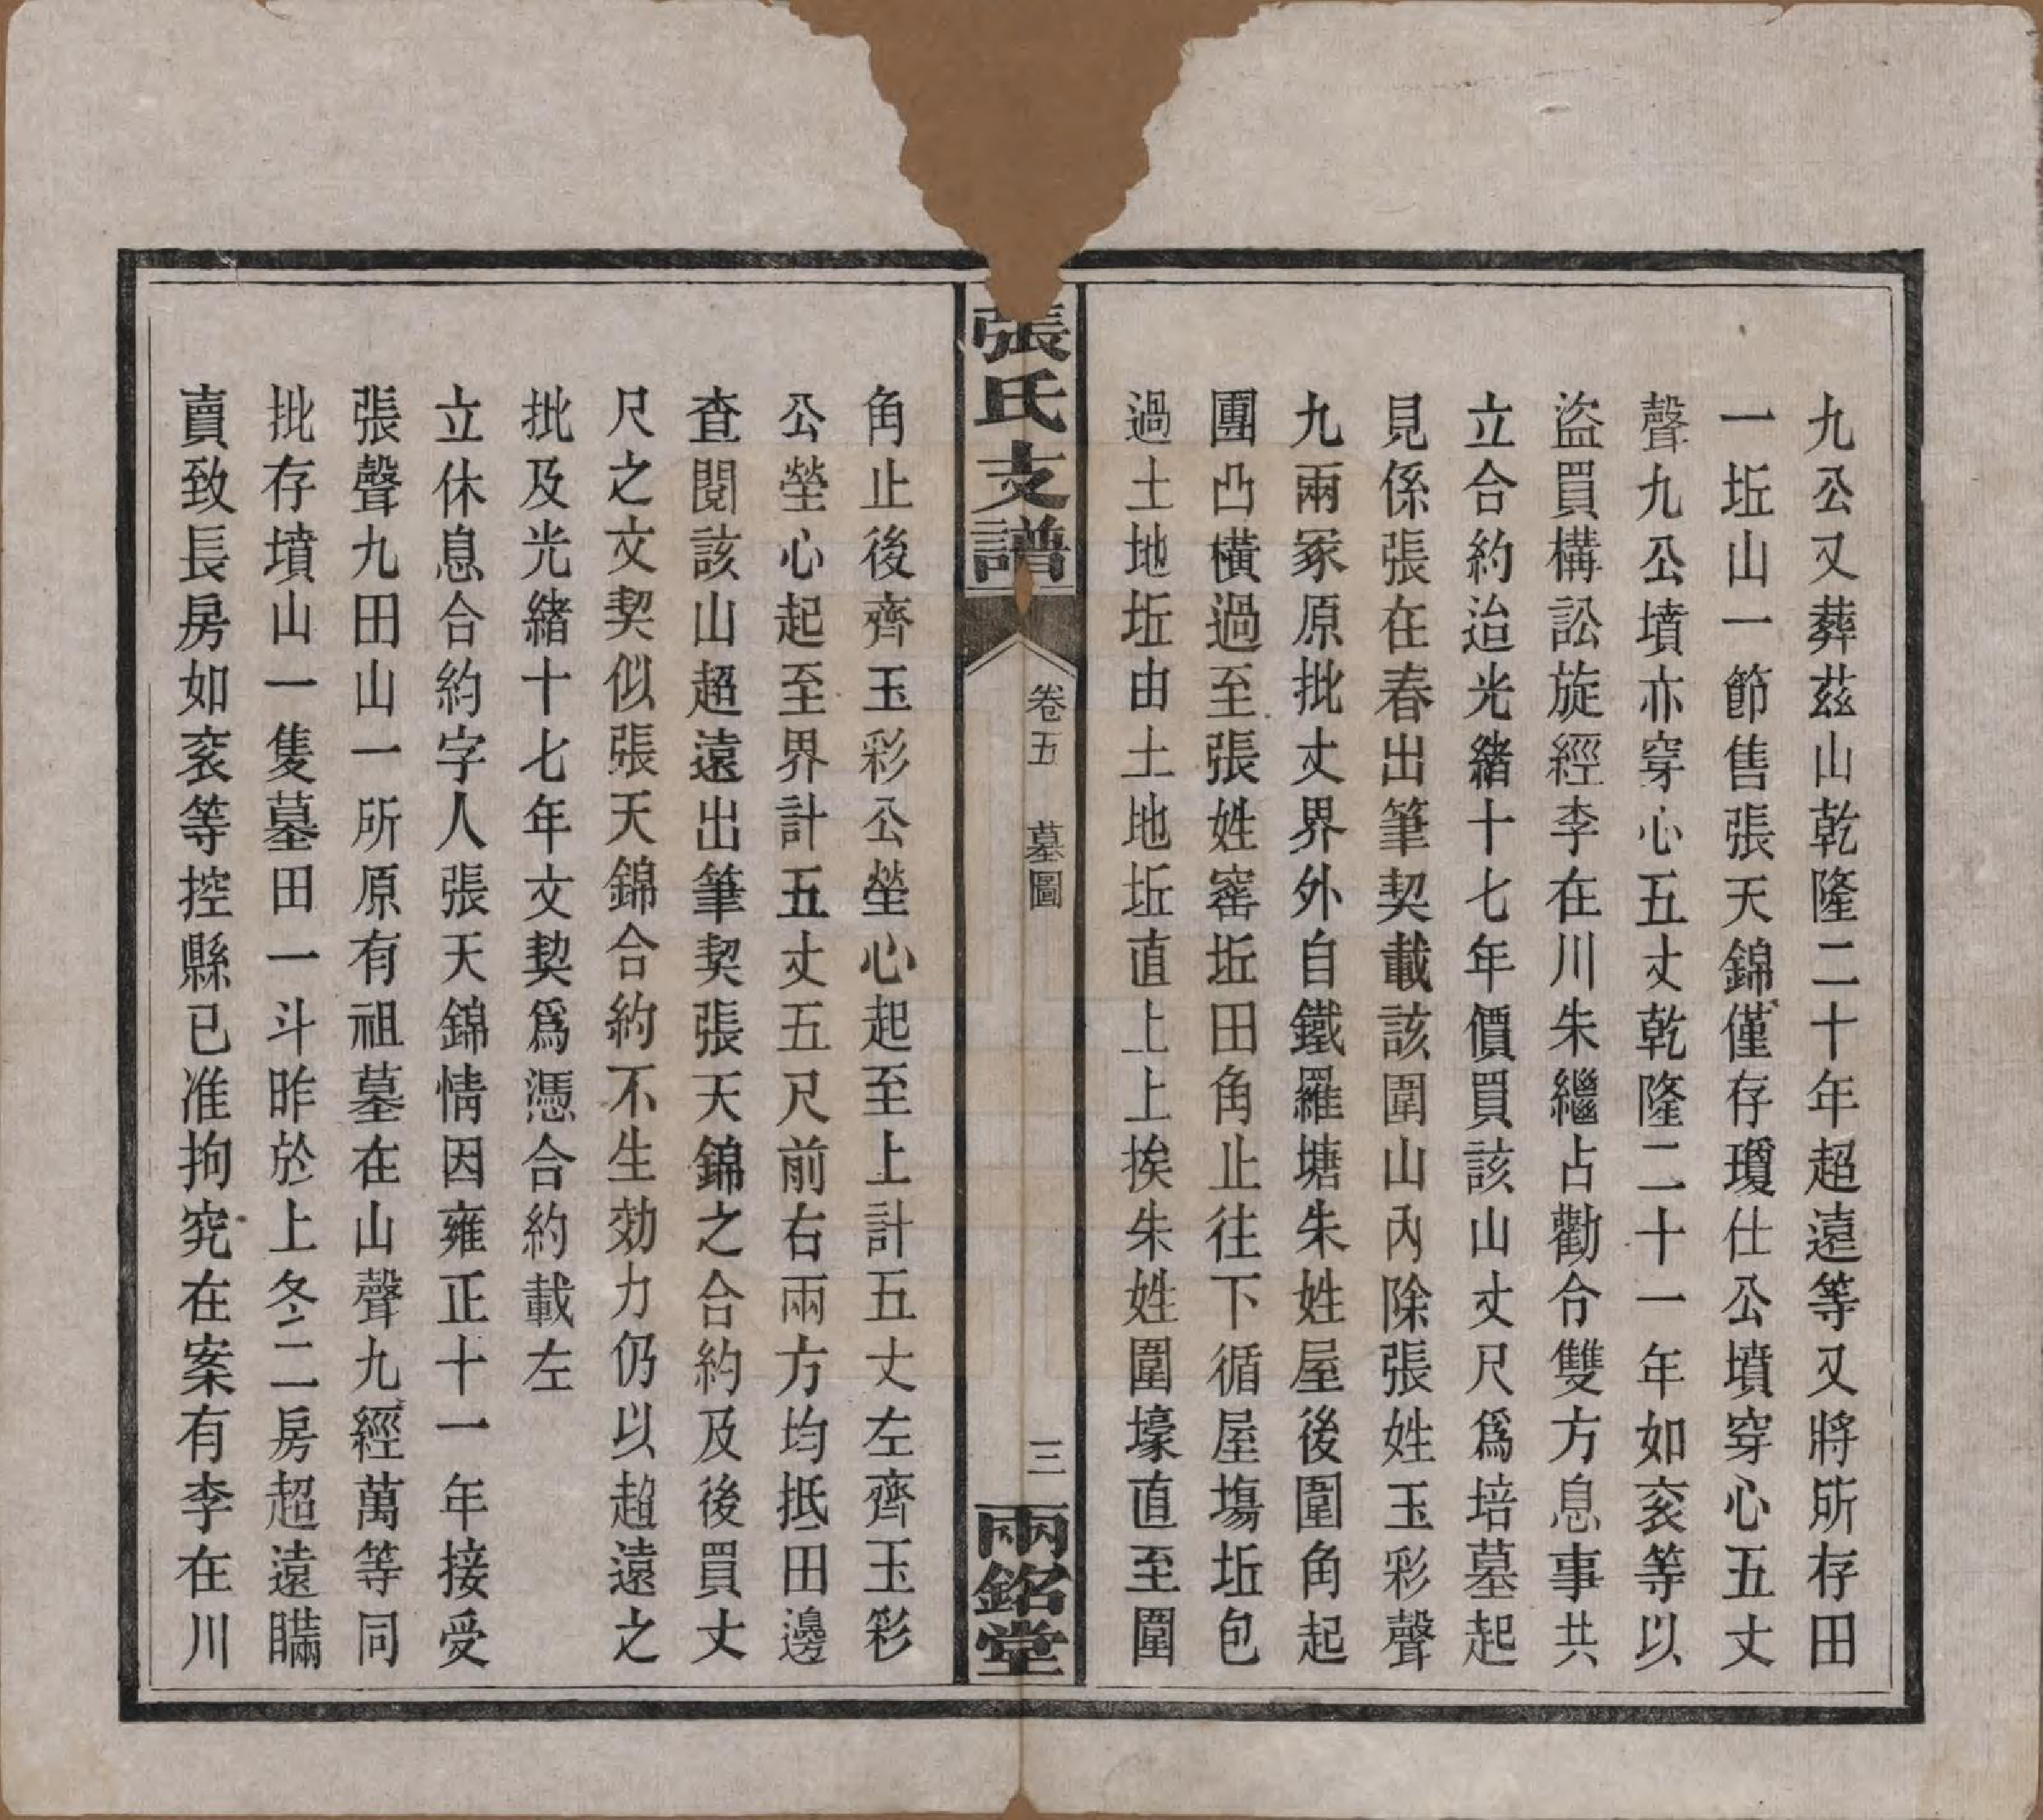 九公又葬茲山乾隆二十年超遠等又將所存田
一坵山一節售張天錦僅存瓊仕公墳穿心五丈
聲九公墳亦穿心五丈乾隆二十一年如衮等以
盜買構訟旋經李在川朱繼占勸合雙方息事共
立合約迨光緒十七年價買該山丈尺爲培墓起
見係張在春出筆契載該圍山內除張姓玉彩聲
九兩冢原批丈界外自鐵羅塘朱姓屋後圍角起
團凸橫過至張姓窰坵田角止往下循屋塲坵包
過土地坵由土地坵直上上挨朱姓圍壕直至圍
張氏支譜
卷五 墓圖
三
兩銘堂
角止後齊玉彩公塋心起至上計五丈左齊玉彩
公塋心起至界計五丈五尺前右兩方均抵田邊
查閱該山超遠出筆契張天錦之合約及後買丈
尺之文契似張天錦合約不生効力仍以超遠之
批及光緒十七年文契爲憑合約載左
立休息合約字人張天錦情因雍正十一年接受
張聲九田山一所原有祖墓在山聲九經萬等同
批存墳山一隻墓田一斗昨於上冬二房超遠瞞
賣致長房如衮等控縣已准拘究在案有李在川